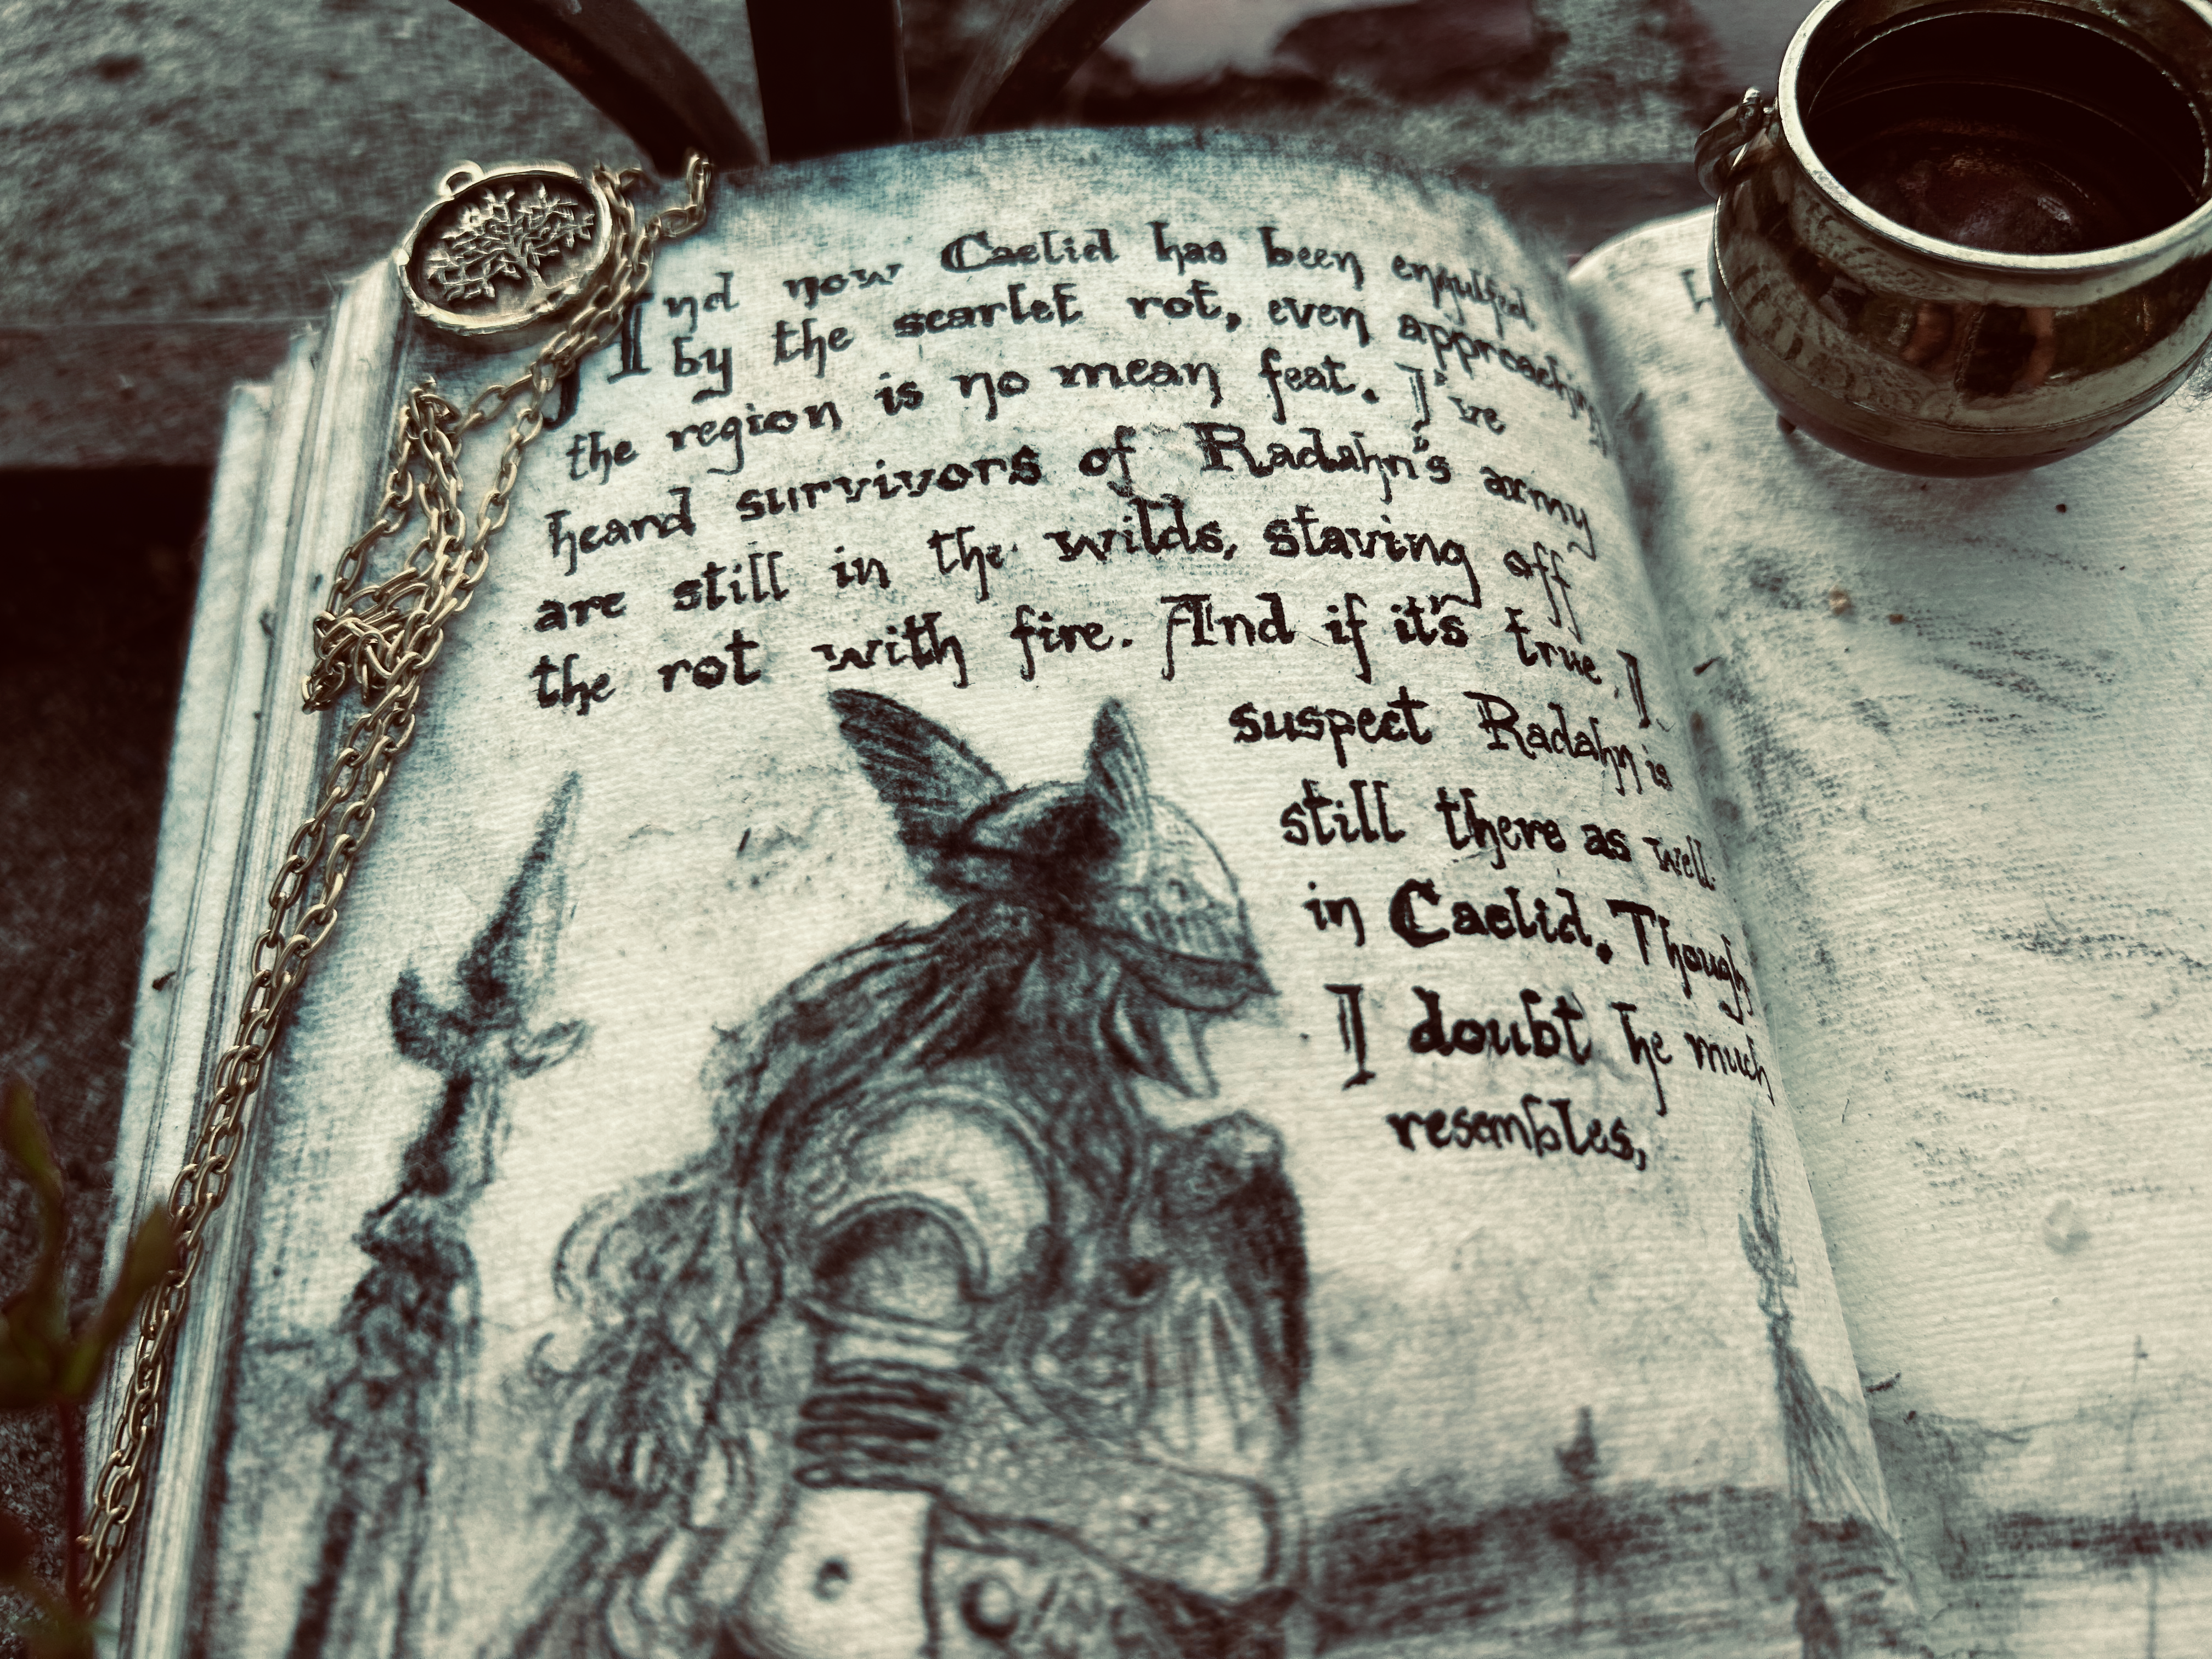 And now Caelid has been engulfed
by the scarlet rot, even approaching
the region is no mean feat. I've
heard survivors of Radahn's army
are still in the wilds, staving off
the rot with fire. And if it's true, I
suspect Radahn is
still there as well
in Caelid. Though
I doubt he much
resembles,